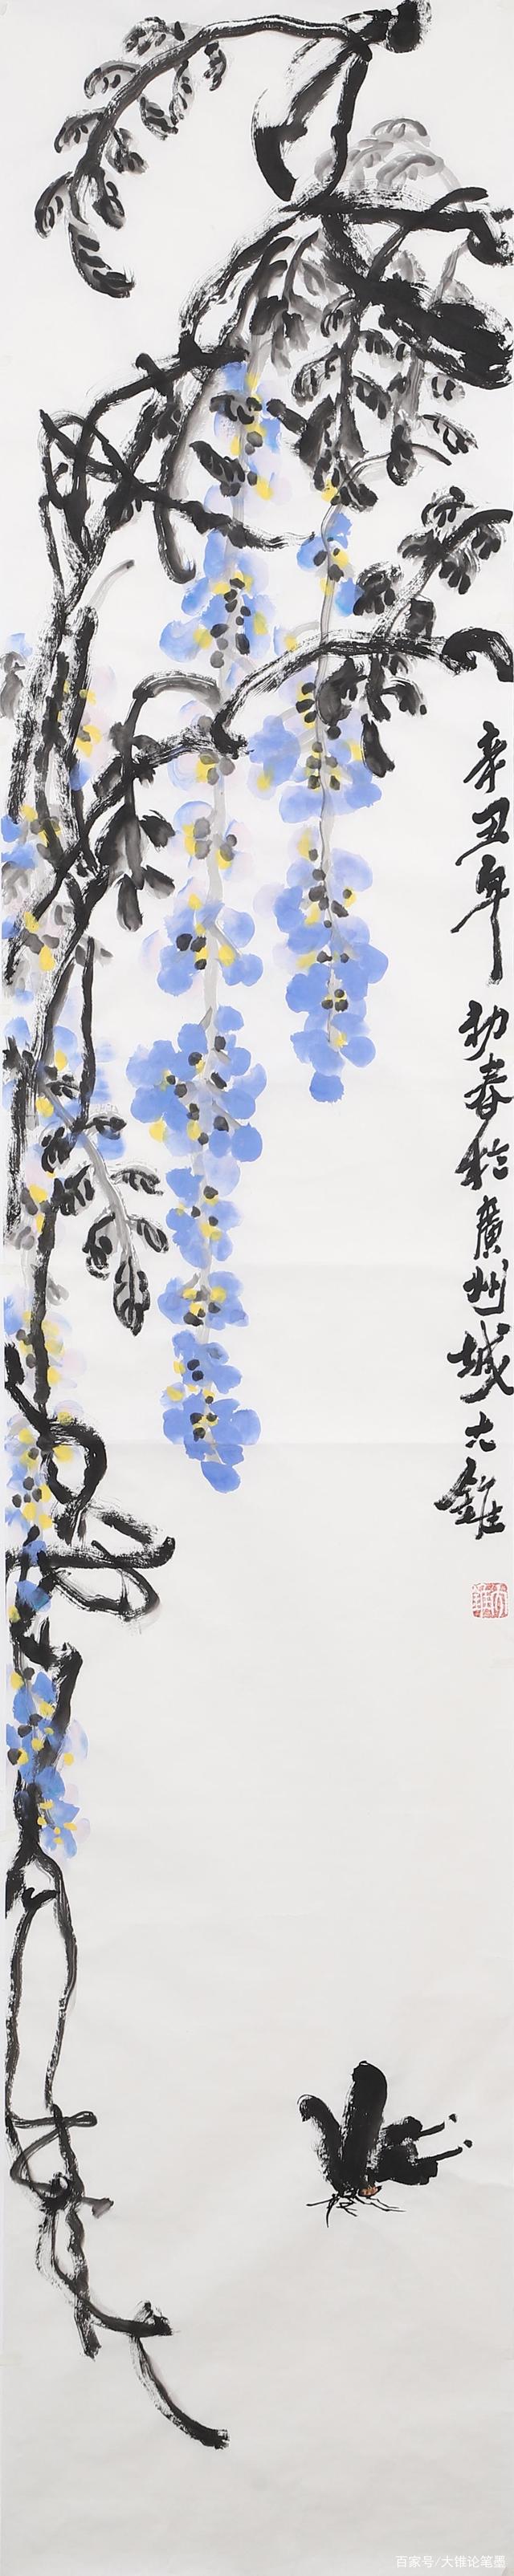 辛丑年初春於廣州城大錐
百家号/大锥论笔墨